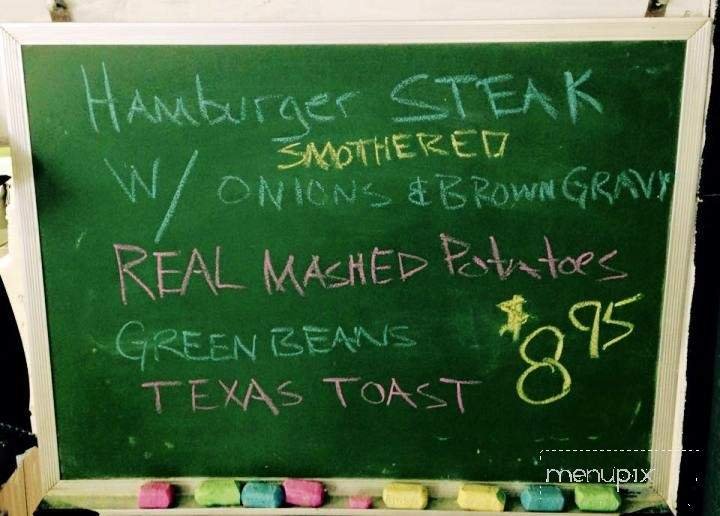 Hamburger STEAK
SMOTHERED
W/ ONIONS & BROWN GRAVY
REAL MASHED Potatoes
GREEN BEANS
$8.95
TEXAS TOAST
menupix